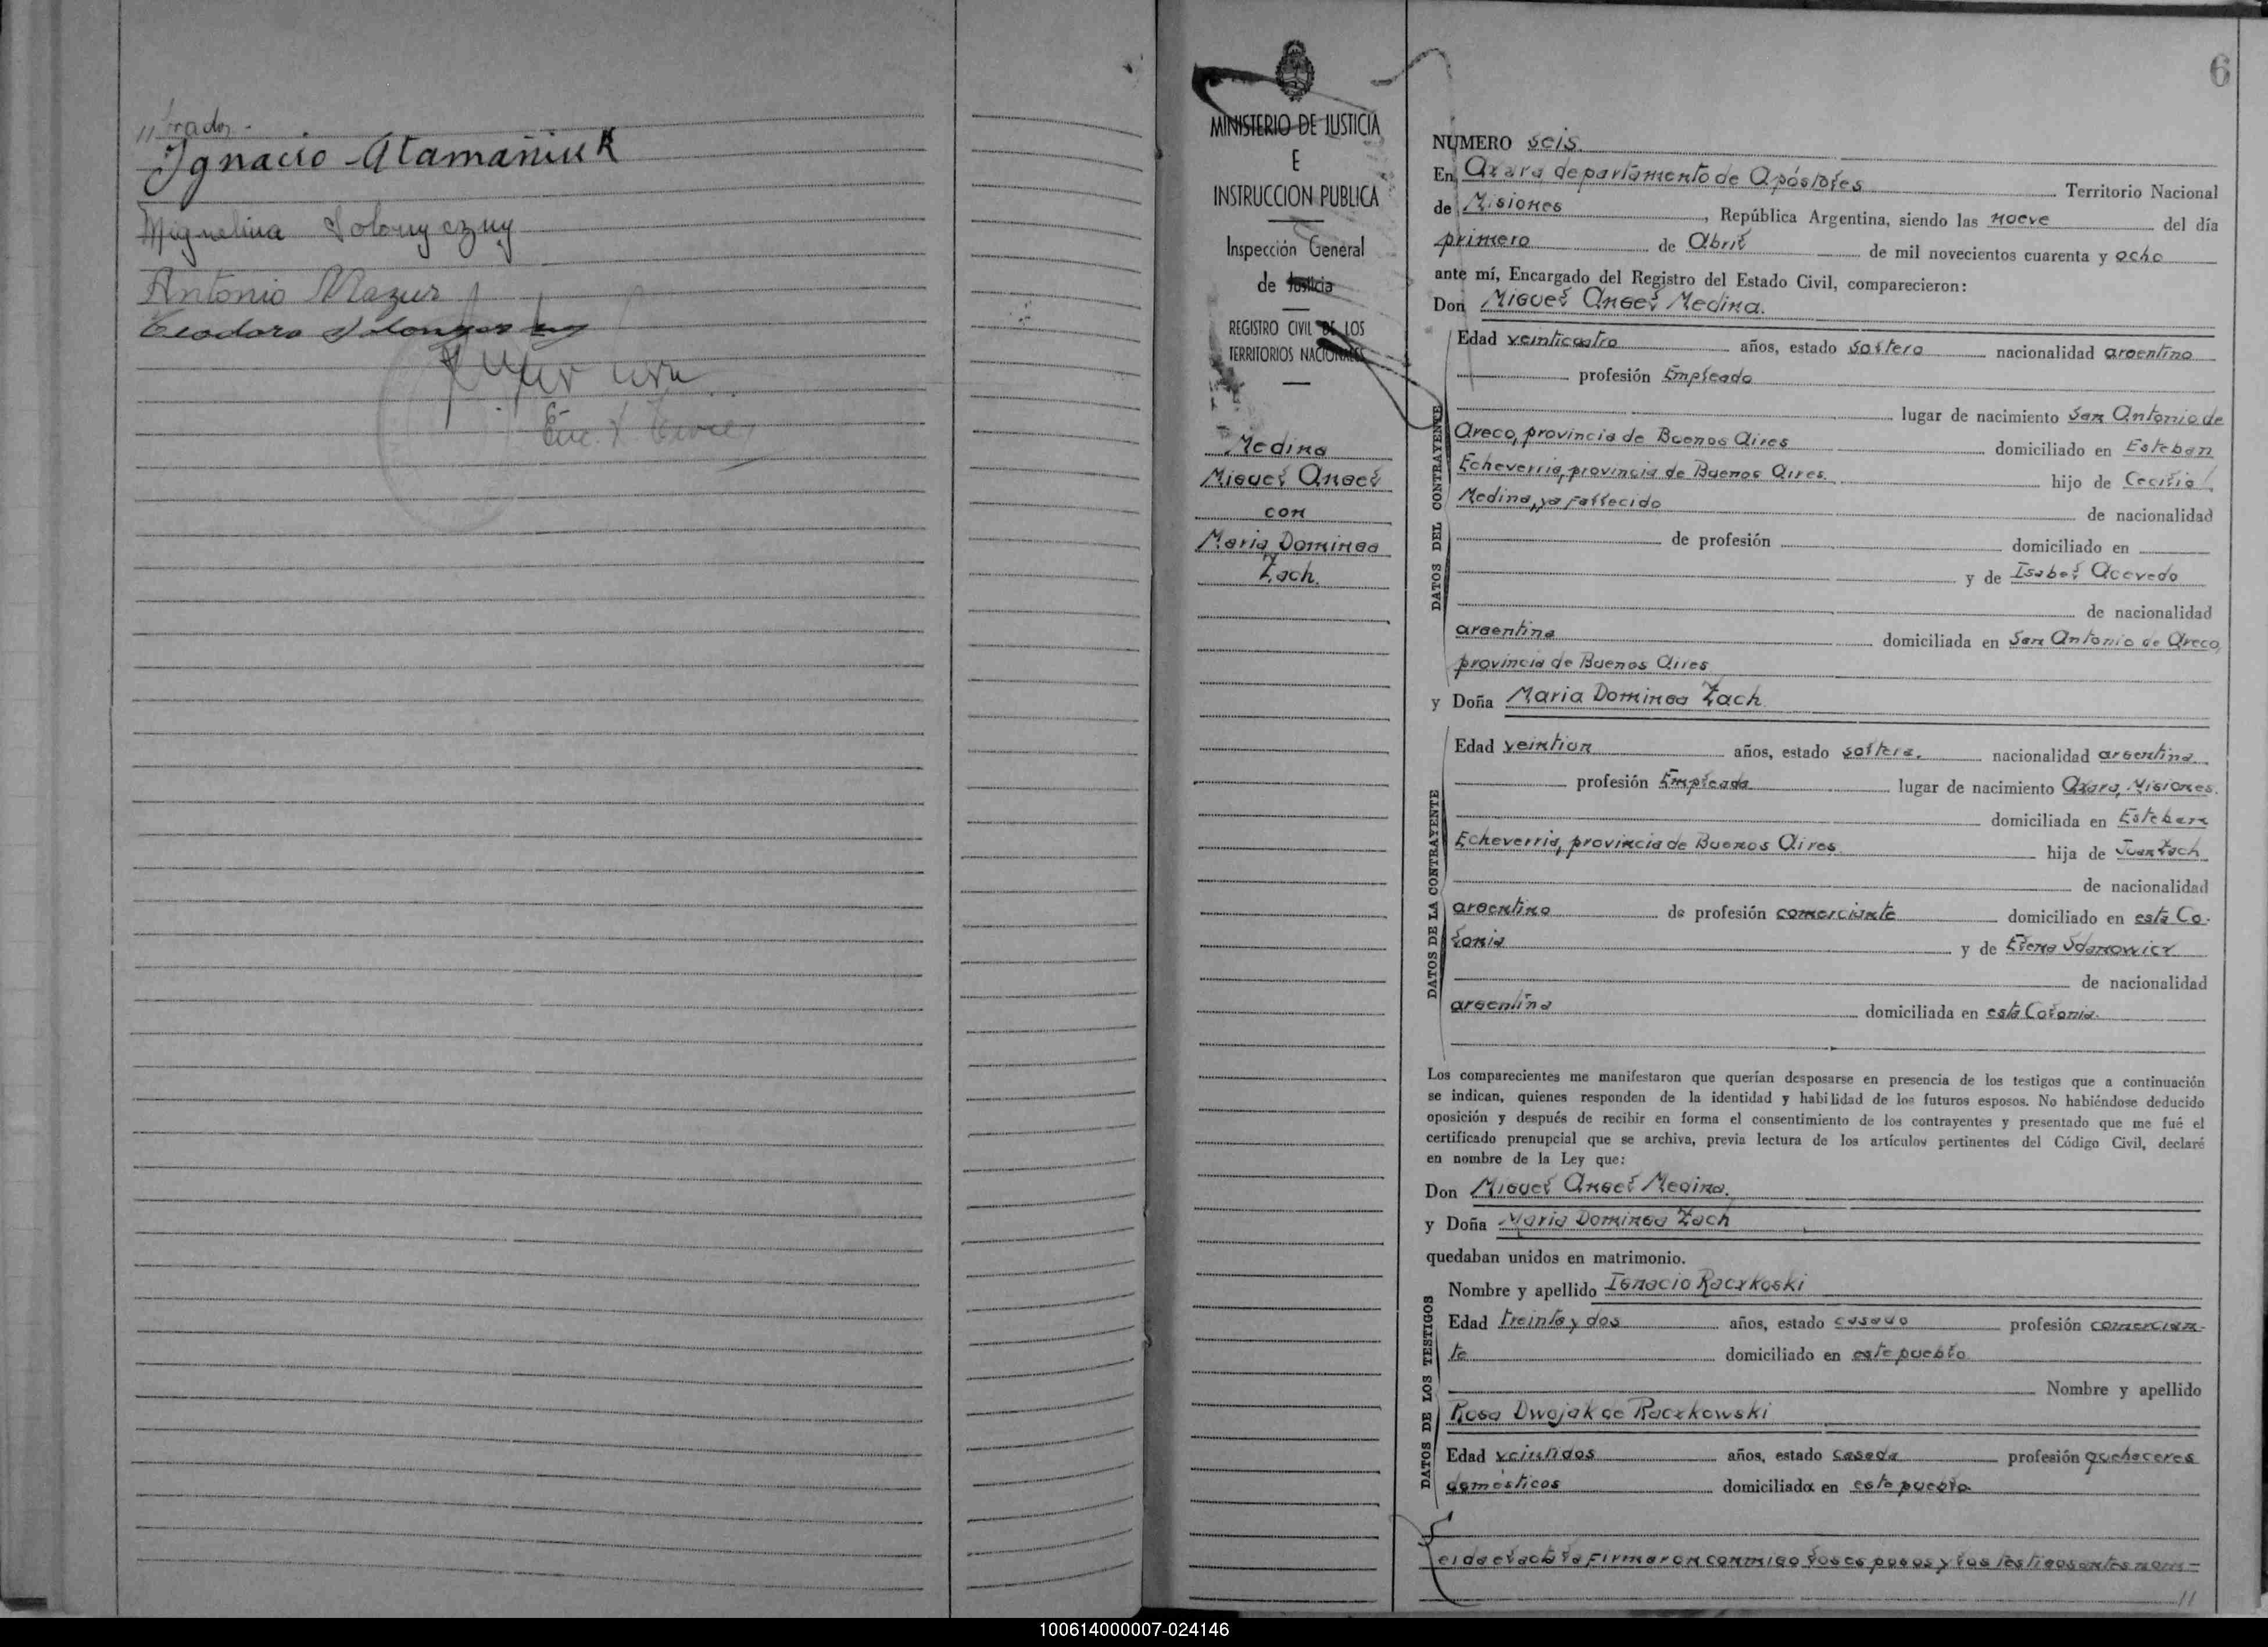 //brados.-
Ignacio Atamañiuk
Miguelina Solonyczny
Antonio Mazur
Teodoro Solonyczny
6
MINISTERIO DE JUSTICIA
E
INSTRUCCION PUBLICA
Inspección General
de Justicia
REGISTRO CIVIL DE LOS
TERRITORIOS NACIONALES
Medina
Miguel Angel
con
Maria Dominga
Zach.
NUMERO seis.
En Azara departamento de Apóstoles Territorio Nacional
de Misiones, República Argentina, siendo las nueve del día
primero de Abril de mil novecientos cuarenta y ocho
ante mí, Encargado del Registro del Estado Civil, comparecieron:
Don Miguel Angel Medina.
DATOS DEL CONTRAYENTE
Edad veinticuatro años, estado soltero nacionalidad argentino
profesión Empleado
lugar de nacimiento San Antonio de
Areco, provincia de Buenos Aires domiciliado en Esteban
Echeverria, provincia de Buenos Aires. hijo de Cecilio
Medina, ya fallecido de nacionalidad
de profesión domiciliado en
y de Isabel Acevedo
de nacionalidad
argentina domiciliada en San Antonio de Areco,
provincia de Buenos Aires
y Doña Maria Dominga Zach
DATOS DE LA CONTRAYENTE
Edad veintiun años, estado soltera. nacionalidad argentina
profesión Empleada lugar de nacimiento Azara, Misiones.
domiciliada en Esteban
Echeverria, provincia de Buenos Aires hija de Juan Zach
de nacionalidad
argentino de profesión comerciante domiciliado en esta Co-
lonia y de Elena Sdanowicz
de nacionalidad
argentina domiciliada en esta Colonia.
Los comparecientes me manifestaron que querían desposarse en presencia de los testigos que a continuación
se indican, quienes responden de la identidad y habilidad de los futuros esposos. No habiéndose deducido
oposición y después de recibir en forma el consentimiento de los contrayentes y presentado que me fué el
certificado prenupcial que se archiva, previa lectura de los artículos pertinentes del Código Civil, declaré
en nombre de la Ley que:
Don Miguel Angel Medina.
y Doña Maria Dominga Zach
quedaban unidos en matrimonio.
DATOS DE LOS TESTIGOS
Nombre y apellido Ignacio Raczkoski
Edad treinta y dos años, estado casado profesión comercian-
te domiciliado en este pueblo
Nombre y apellido
Rosa Dwojak de Raczkowski
Edad veintidos años, estado casada profesión quehaceres
domésticos domiciliada en este pueblo
Leida el acta la firmaron conmigo los esposos y los testigos antes nom-
//
100614000007-024146